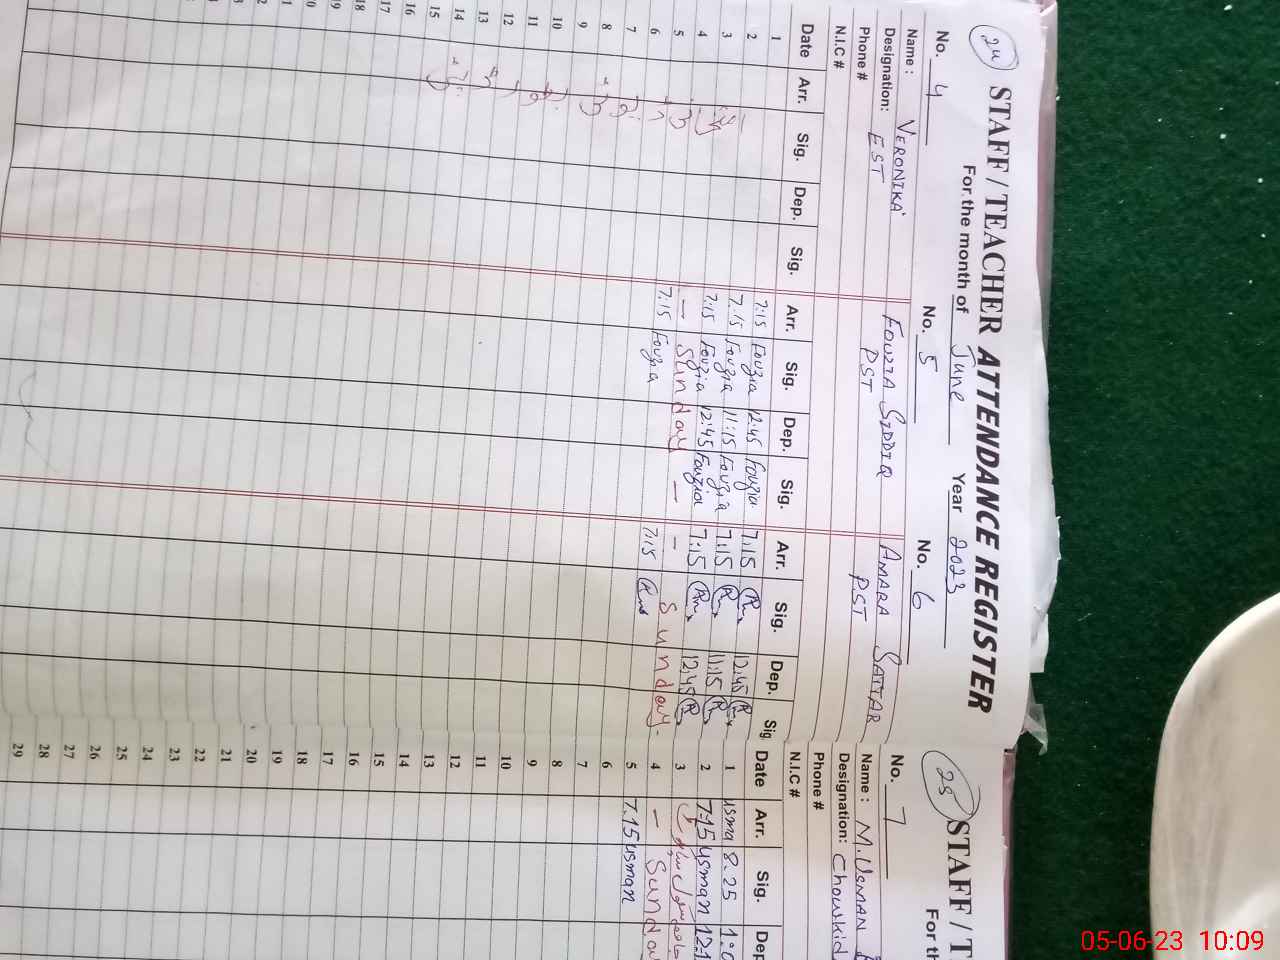 24
STAFF / TEACHER ATTENDANCE REGISTER
For the month of June Year 2023
No. 4 No. 5 No. 6
Name : VERONIKA FOUZIA SIDDIQ AMARA SATTAR
Designation: EST PST PST
Phone #
N.I.C #
Date Arr. Sig. Dep. Sig. Arr. Sig. Dep. Sig. Arr. Sig. Dep. Sig
1 7:15 Fouzia 12:45 Fouzia 7:15 12:45
2 7:15 Fouzia 11:15 Fouzia 7:15 11:15
3 7:15 Fouzia 12:45 Fouzia 7:15 12:45
4 — Sunday — — Sunday -
5 7:15 Fouzia 7:15
6
7
8
9
10
11
12
13
14
15
16
17
18
19
20
25 STAFF / T
For th
No. 7
Name : M. USMAN
Designation: Chowkid
Phone #
N.I.C #
Date Arr. Sig. Dep
1 usma 8.25
2 7:15 usman
3
4 — Sunda
5 7.15 usman
6
7
8
9
10
11
12
13
14
15
16
17
18
19
20
21
22
23
24
25
26
27
28
29
05-06-23 10:09